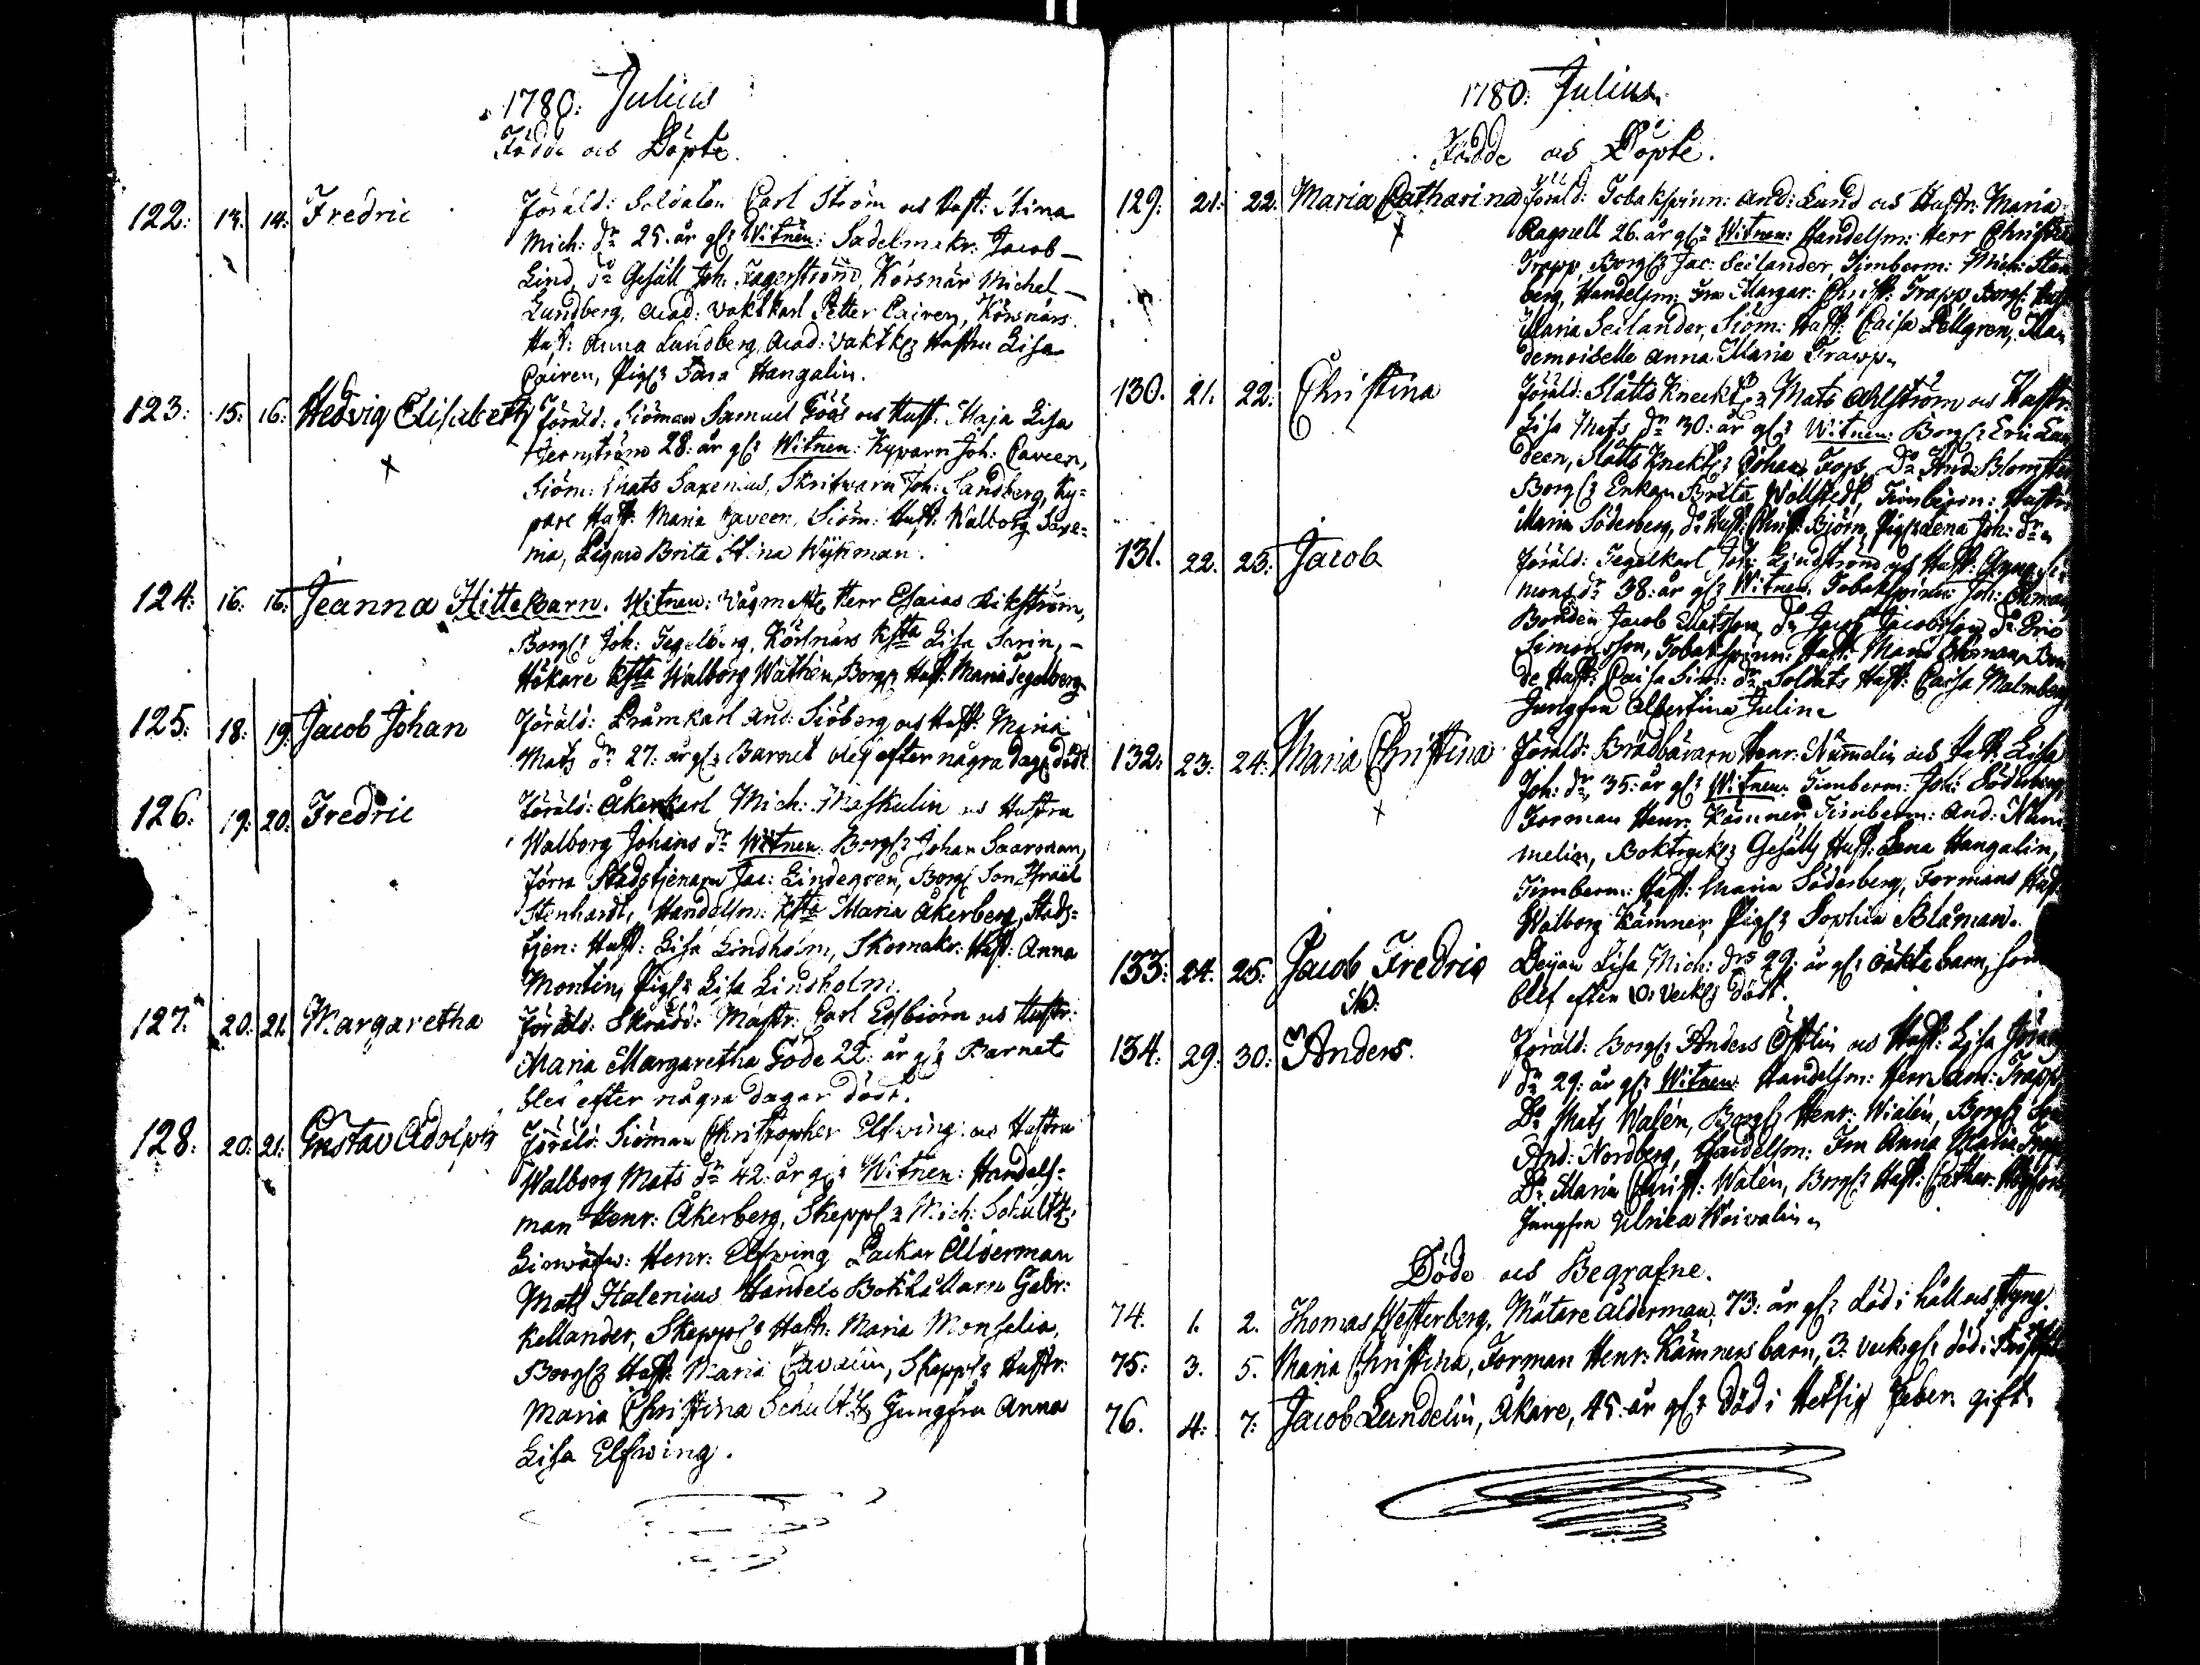 1780. Julius
Födde och Döpte.
122: 13. 14. Fredric Föräld: Soldaten Carl Ström och Hust: Stina
Mich: dr 25. år gl: Witnen: Sadelmakr: Jacob
Lind, do Gesäll Joh. Fagerström, Körsnär Michel
Lundberg, Acad: vaktkarl Petter Cairen, Körsnärs
Hust: Anna Lundberg, Acad: vaktk: Hustru Lisa
Cairen, Pig: Sara Hangalin.
123: 15: 16: Hedvig Elisabeth Föräld: Siöman Samuel Göös och Hust: Maja Lisa
Hernström 28: år gl: Witnen: Kyparn Joh: Caveen,
Siöm: Mats Saxenius, Skrifwarn Joh: Sandberg, Ky=
pare Hust: Maria Caveen, Siöm: Hust: Walborg Saxe=
nia, Pigan Brita Stina Wykman.
124: 16. 16: Jeanna Hittebarn. Witnen: Vågm Herr Esaias
Borg: Joh: Segelberg, Körsnärs Lisa Sarin,
Hökare Walborg Wathén, Borg: Hust: Maria Segelberg.
125. 18: 19: Jacob Johan Föräld: Pråmkarl And: Siöberg och Hust: Maria
Mats dr 27: år gl: Barnet blef efter några dag: dödt
126. 19: 20: Fredric Föräld: Åkerkarl Mich: Maskulin och Hustru
Walborg Johans dr Witnen: Borg: Johan Saarman,
Förra Stadstjenarn Jac: Lindegren, Borg: Son Israel
Stenhardt, Handelsm: Maria Åkerberg, Stads=
tjen: Hust: Lisa Lindholm, Skomakr: Hust: Anna
Montin, Pig: Lisa Lindholm.
127. 20: 21. Margaretha Föräld: Skrädd: Mästr: Carl Esbiörn och Hustr:
Maria Margaretha Gode 22: år gl: Barnet
blef efter några dagar dödt.
128: 20: 21: Gustav Adolph Föräld: Siöman Christopher Elfwing och Hustru
Walborg Mats dr 42: år gl: Witnen: Handels=
man Henr: Åkerberg, Skepp: Mich: Schultz,
Henr: Elfwing Packar Ålderman
Mats Stalenius Handels Bokhållarn Gabr:
Kellander, Skepp: Hustr: Maria Monselia,
Borg: Hust: Maria, Skepp: Hustr:
Maria Christina Schultz Jungfru Anna
Lisa Elfwing.
1780: Julius
Födde och Döpte.
129: 21: 22: Maria Catharina Föräld: Tobakspinn: And: Lund och Hustr: Maria
Ragnell 26. år gl: Witnen: Handelsm: Herr
Trapp, Borg: Jac: Seilander, Timberm: Mich: Stan
berg, Handelsm: Fru Margar: Christ: Trapp, Borg:
Maria Seilander, Siöm: Hust: Caisa Pellgren, Ma
demoiselle Anna Maria Trapp.
130. 21. 22: Christina Föräld: Slåtts Kneckt: Mats Ahlström och Hustr:
Lisa Mats dr 30: år gl: Witnen: Borg: Eric
deen, Slåtts Knekt: Johan, do And: Blom
Borg: Enkan Brita Wallstedt, Timberm: Hustr:
Maria Söderberg, do Hust: Christ: Björn, Pig: Lena Joh: dr
131. 22. 23: Jacob Föräld: Segelkarl Joh: Lindström och Hust: Agnes Si
mons dr 38: år gl: Witnen: Tobakspinn: Joh:
Bonden Jacob Matsson, do Jacob Jacobsson do Eric
Simonsson, Tobakspinn: Hust: Maria Bon
de Hust: Caisa Sim: dr, Soldats Hust: Caisa Malmberg,
Jungfru Albertina Julin
132: 23: 24: Maria Christina Föräld: Brädbärarn Henr: Nummelin och Hust: Lisa
Joh: dr 35: år gl: Witnen: Timberm: Joh: Söderberg,
Forman Henr: Kämner Timberm: And: Num
melin, Boktryck: Gesälls Hust: Lena Hangalin,
Timberm: Hust: Maria Söderberg, Formans Hust:
Walborg Kämner, Pig: Sophia Blåman.
133: 24: 25: Jacob Fredric Deijan Lisa Mich: dr 29: år gl: oäkta barn, som
blef efter 10: veck: dödt.
134: 29: 30: Anders. Föräld: Borg: Anders Östlin och Hust: Lisa
dr 29: år gl: Witnen: Handelsm: Herr Sam: Trapp,
Do Mats Walén, Borg: Henr: Wialén, Borg: Son
And: Nordberg, Handelsm: Fru Anna Maria Trapp
Do Maria Christ: Walén, Borg: Hust: Cathar:
Jungfru Ulrica Woivalin
Döde och Begrafne.
74. 1. 2. Thomas Westerberg, Mätare ålderman, 73: år gl: död i håll och styng.
75: 3. 5. Maria Christina, Forman Henr: Kämners barn, 3: veck: gl: död i
76. 4: 7: Jacob Lundelin, Åkare, 45: år gl: död i Hetsig Feber. gift.